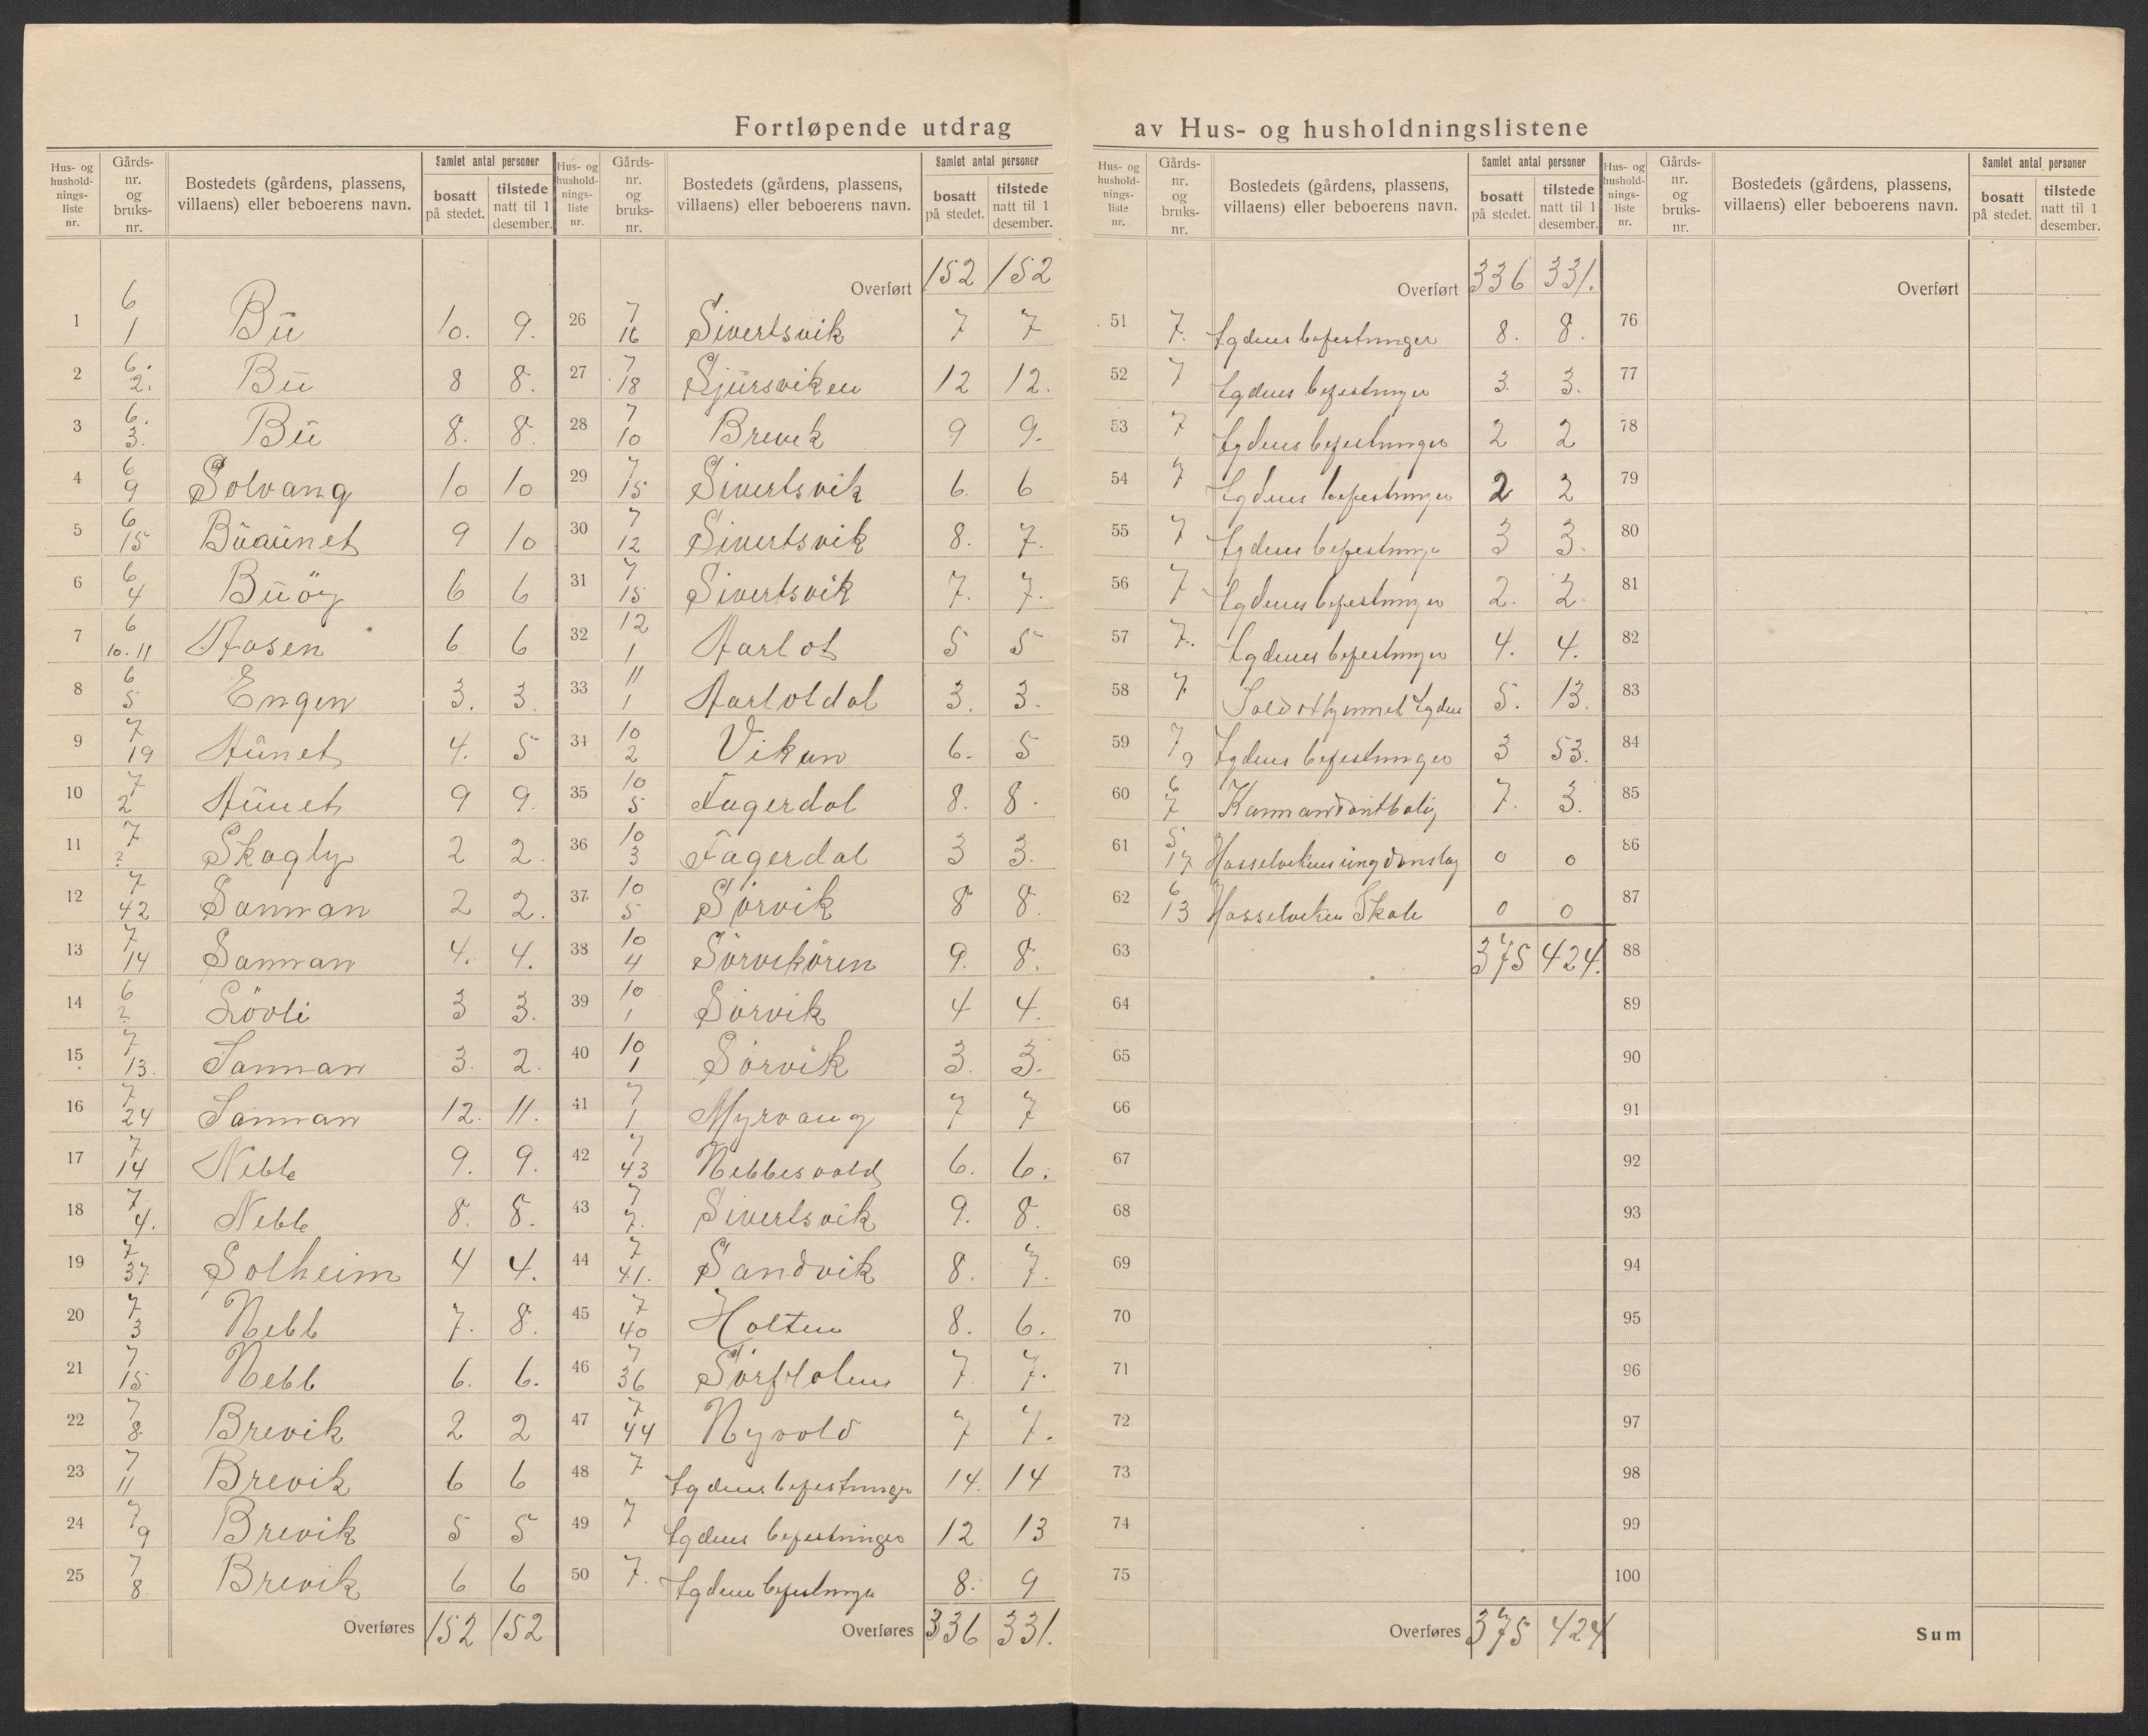 Fortløpende utdrag av Hus- og husholdningslistene
Hus- og husholdnings-liste nr. | Gårds-nr. og bruks-nr. | Bostedets (gårdens, plassens, villaens) eller beboerens navn. | Samlet antal personer bosatt på stedet. | tilstede natt til 1 desember.
1 6/1 Bu 10. 9.
2 6./2. Bu 8 8.
3 6./3. Bu 8. 8.
4 6/9 Solvang 10 10
5 6/15 Buaunet 9 10
6 6/4 Buöy 6 6
7 6/10.11 Aasen 6 6
8 6/5 Engen 3. 3.
9 7/19 Aunet 4. 5
10 7/2 Aunet 9 9.
11 7/? Skogly 2 2.
12 7/42 Sannan 2 2.
13 7/14 Sannan 4. 4.
14 6/? Lövli 3 3.
15 7/13. Sannan 3. 2.
16 7/24 Sannan 12. 11.
17 7/14 Nebb 9. 9.
18 7/4. Nebb 8. 8.
19 7/37 Solheim 4 4.
20 7/3 Nebb 7. 8.
21 7/15 Nebb 6. 6.
22 7/8 Brevik 2 2
23 7/11 Brevik 6 6
24 7/9 Brevik 5 5
25 7/8 Brevik 6 6
Overføres 152 152
Hus- og husholdnings-liste nr. | Gårds-nr. og bruks-nr. | Bostedets (gårdens, plassens, villaens) eller beboerens navn. | Samlet antal personer bosatt på stedet. | tilstede natt til 1 desember.
Overført 152 152
26 7/16 Sivertsvik 7 7
27 7/18 Sjursviken 12 12.
28 7/10 Brevik 9 9.
29 7/15 Sivertsvik 6 6
30 7/12 Sivertsvik 8. 7.
31 7/15 Sivertsvik 7. 7.
32 12/1 Aarlot 5 5
33 11/1 Aarlotdal 3. 3.
34 10/2 Vikan 6. 5
35 10/5 Fagerdal 8. 8.
36 10/3 Fagerdal 3 3.
37 10/5 Sörvik 8 8.
38 10/4 Sörvikören 9. 8.
39 10/1 Sörvik 4 4.
40 10/1 Sörvik 3. 3.
41 7/1 Myrvang 7 7
42 7/43 Nebbesvold 6. 6.
43 7/7. Sivertsvik 9. 8.
44 7/41. Sandvik 8. 7.
45 7/40 Holten 8. 6.
46 7/36 7 7.
47 7/44 Nyvold 7 7.
48 7 Agdenes befestninger 14. 14
49 7 Agdenes befestninger 12 13
50 7. Agdenes befestninger 8. 9
Overføres 336 331.
Hus- og husholdnings-liste nr. | Gårds-nr. og bruks-nr. | Bostedets (gårdens, plassens, villaens) eller beboerens navn. | Samlet antal personer bosatt på stedet. | tilstede natt til 1 desember.
Overført 336 331.
51 7. Agdenes befestninger 8. 8.
52 7 Agdenes befestninger 3. 3.
53 7 Agdenes befestninger 2 2
54 7 Agdenes befestninger 2 2
55 7 Agdenes befestninger 3 3.
56 7 Agdenes befestninger 2. 2.
57 7. Agdenes befestninger 4. 4.
58 7 Soldathjemmet Agdenes 5. 13.
59 7/9 Agdenes befestninger 3 53.
60 6/7 Kommandantbolig 7. 3.
61 5/17 Hasselvikens ungdomslag 0 0
62 6/13 Hasselviken Skole 0 0
63 375 424.
64
65
66
67
68
69
70
71
72
73
74
75
Overføres 375 424
Hus- og husholdnings-liste nr. | Gårds-nr. og bruks-nr. | Bostedets (gårdens, plassens, villaens) eller beboerens navn. | Samlet antal personer bosatt på stedet. | tilstede natt til 1 desember.
Overført
76
77
78
79
80
81
82
83
84
85
86
87
88
89
90
91
92
93
94
95
96
97
98
99
100
Sum